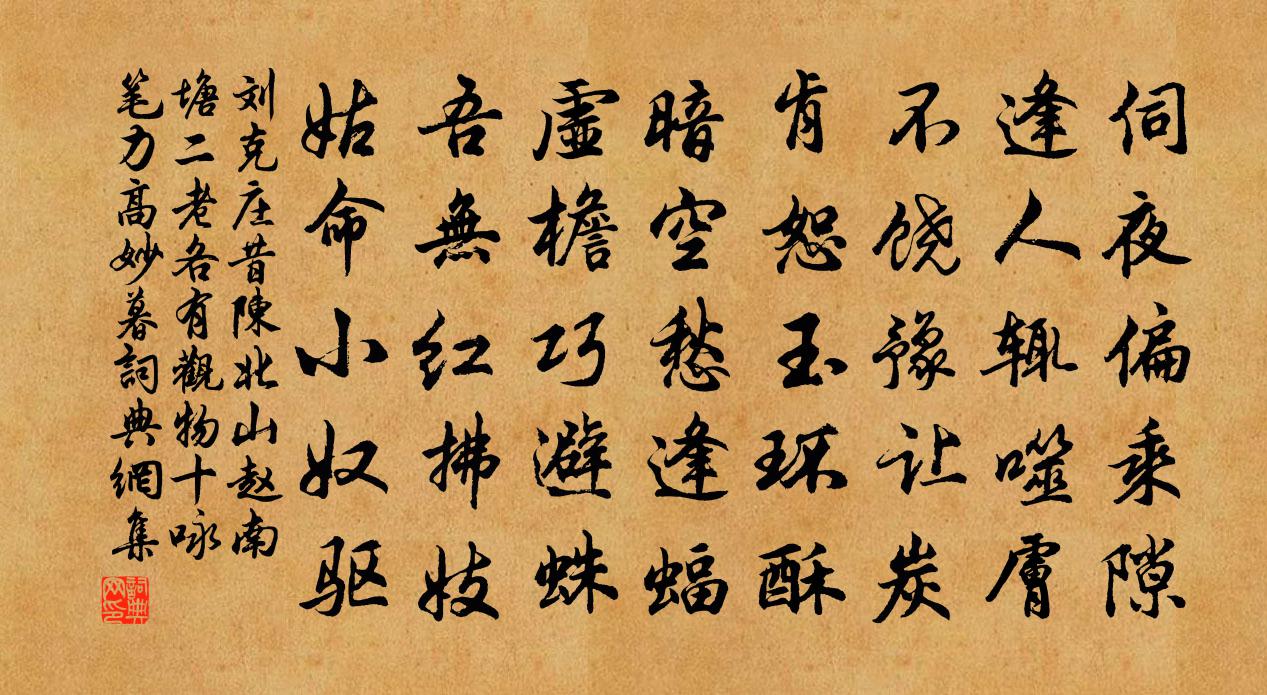 伺夜偏乘隙
逢人辄噬膚
不饶豫让炭
肯恕玉环酥
暗空愁逢蝠
虚檐巧避蛛
吾無红拂妓
姑命小奴驱
刘克庄昔陳北山赵南
塘二老各有觀物十咏
笔力高妙暮詞典網集